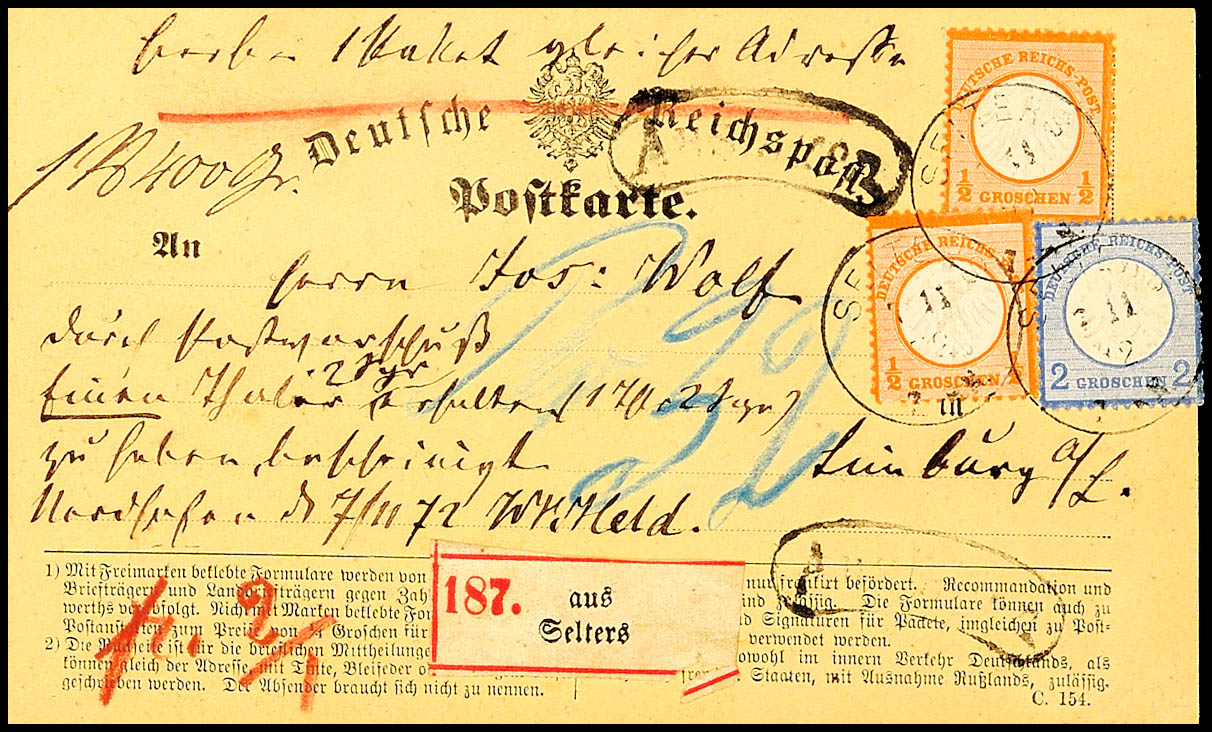 hierbei 1 Paket gleicher Adresse
Deutsche Reichspost.
1 400 Gr.
Postkarte.
An
Herrn Jos: Wolf
durch Postvorschuß
2 Sgr
Einen Thaler erhalten (1 2 Sgr)
zu haben bescheinigt Limburg a/L.
Nordhofen d 7/11 72 Held.
DEUTSCHE REICHS-POST
1/2 GROSCHEN 1/2
DEUTSCHE REICHS-POST
1/2 GROSCHEN 1/2
DEUTSCHE REICHS-POST
2 GROSCHEN 2
SELTERS
11
187. aus
Selters
1) Mit Freimarken beklebte Formulare werden von
Briefträgern und Landbriefträgern gegen
werths verabfolgt. Nicht mit Marken beklebte
Postanstalten zum Preise von 1/4 Groschen für
2) Die Rückseite ist für die brieflichen Mittheilungen
können gleich der Adresse mit Tinte, Bleifeder
geschrieben werden. Der Absender braucht sich nicht zu nennen.
nur frankirt befördert. Recommandation und
sind zulässig. Die Formulare können auch zu
Signaturen für Packete, imgleichen zu Post-
verwendet werden.
sowohl im innern Verkehr Deutschlands, als
Staaten, mit Ausnahme Rußlands, zulässig.
C. 154.